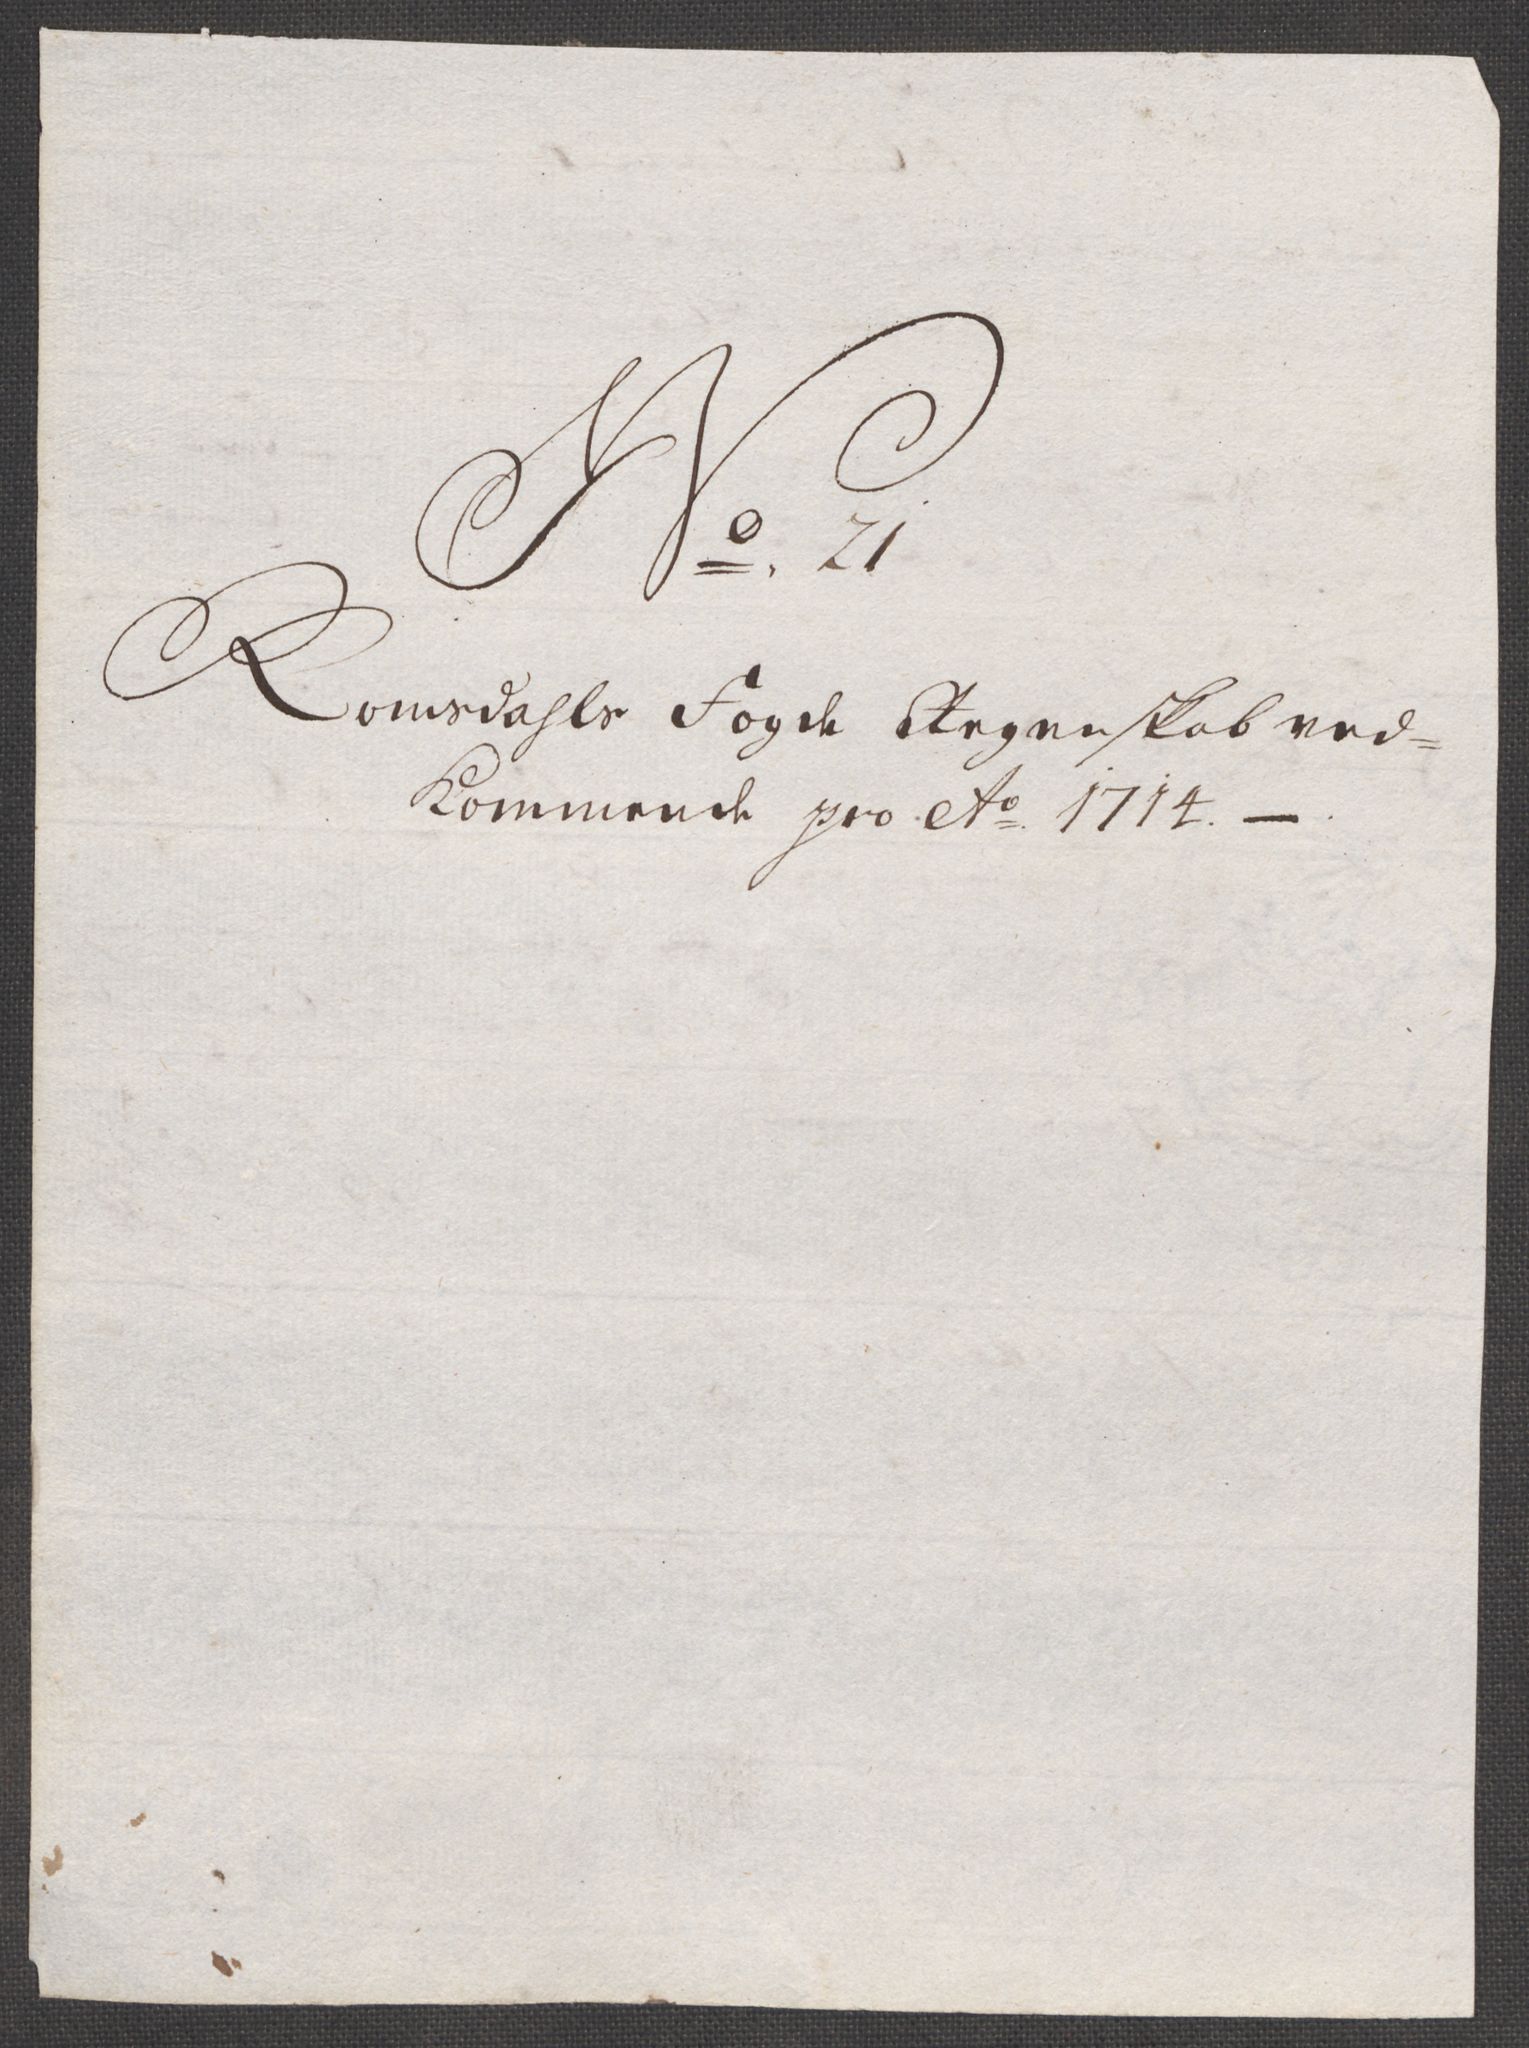 No. 21
Romsdahls Fogde Regenskab ved=
Kommende pro Ao. 1714. —